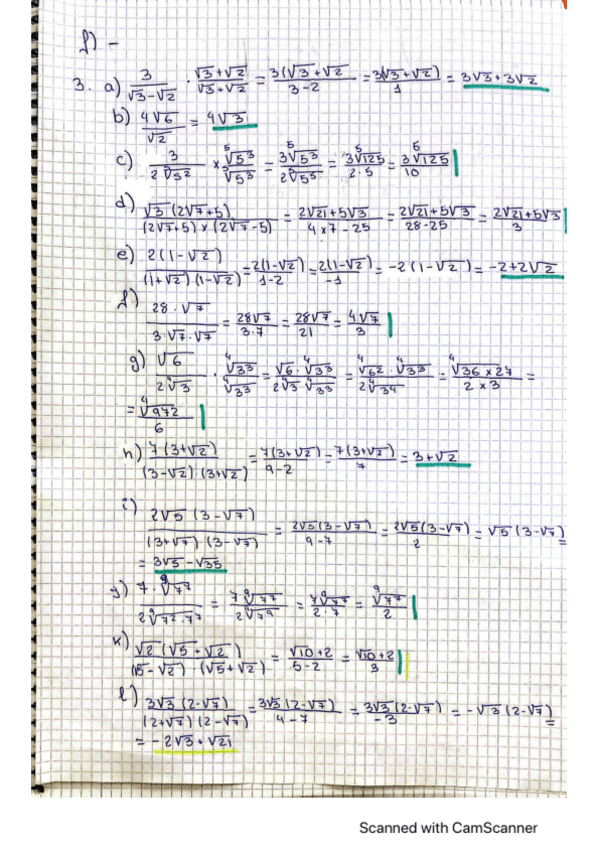 f) -
3. a) 3/(√3-√2) · (√3+√2)/(√3+√2) = 3(√3+√2/(3-2) = 3(√3+√2)/1 = 3√3+3√2
b) 4√6/√2 = 4√3
c) 3/(2⁵√5²) × ⁵√5³/⁵√5³ = 3⁵√5³/(2⁵√5⁵) = 3⁵√125/(2·5) = 3⁵√125/10
d) √3(2√7+5)/((2√7+5)×(2√7-5)) = (2√21+5√3)/(4×7-25) = (2√21+5√3)/(28-25) = (2√21+5√3)/3
e) 2(1-√2)/((1+√2)(1-√2)) = 2(1-√2)/(1-2) = 2(1-√2)/(-1) = -2(1-√2) = -2+2√2
f) 28·√7/(3·√7·√7) = 28√7/(3·7) = 28√7/21 = 4√7/3
g) √6/(2⁴√3) · ⁴√3³/⁴√3³ = √6·⁴√3³/(2⁴√3 ⁴√3³) = ⁴√6²·⁴√3³/(2⁴√3⁴) = ⁴√(36×27)/(2×3) =
= ⁴√972/6
h) 7(3+√2)/((3-√2)(3+√2)) = 7(3+√2)/(9-2) = 7(3+√2)/7 = 3+√2
i) 2√5(3-√7)/((3+√7)(3-√7)) = 2√5(3-√7)/(9-7) = 2√5(3-√7)/2 = √5(3-√7) =
= 3√5-√35
j) 7·⁹√7⁷/(2⁹√7²·7⁷) = 7⁹√7⁷/(2⁹√7⁹) = 7⁹√7⁷/(2·7) = ⁹√7⁷/2
k) √2(√5+√2)/((√5-√2)·(√5+√2)) = (√10+2)/(5-2) = (√10+2)/3
l) 3√3(2-√7)/((2+√7)(2-√7)) = 3√3(2-√7)/(4-7) = 3√3(2-√7)/(-3) = -√3(2-√7) =
= -2√3+√21
Scanned with CamScanner